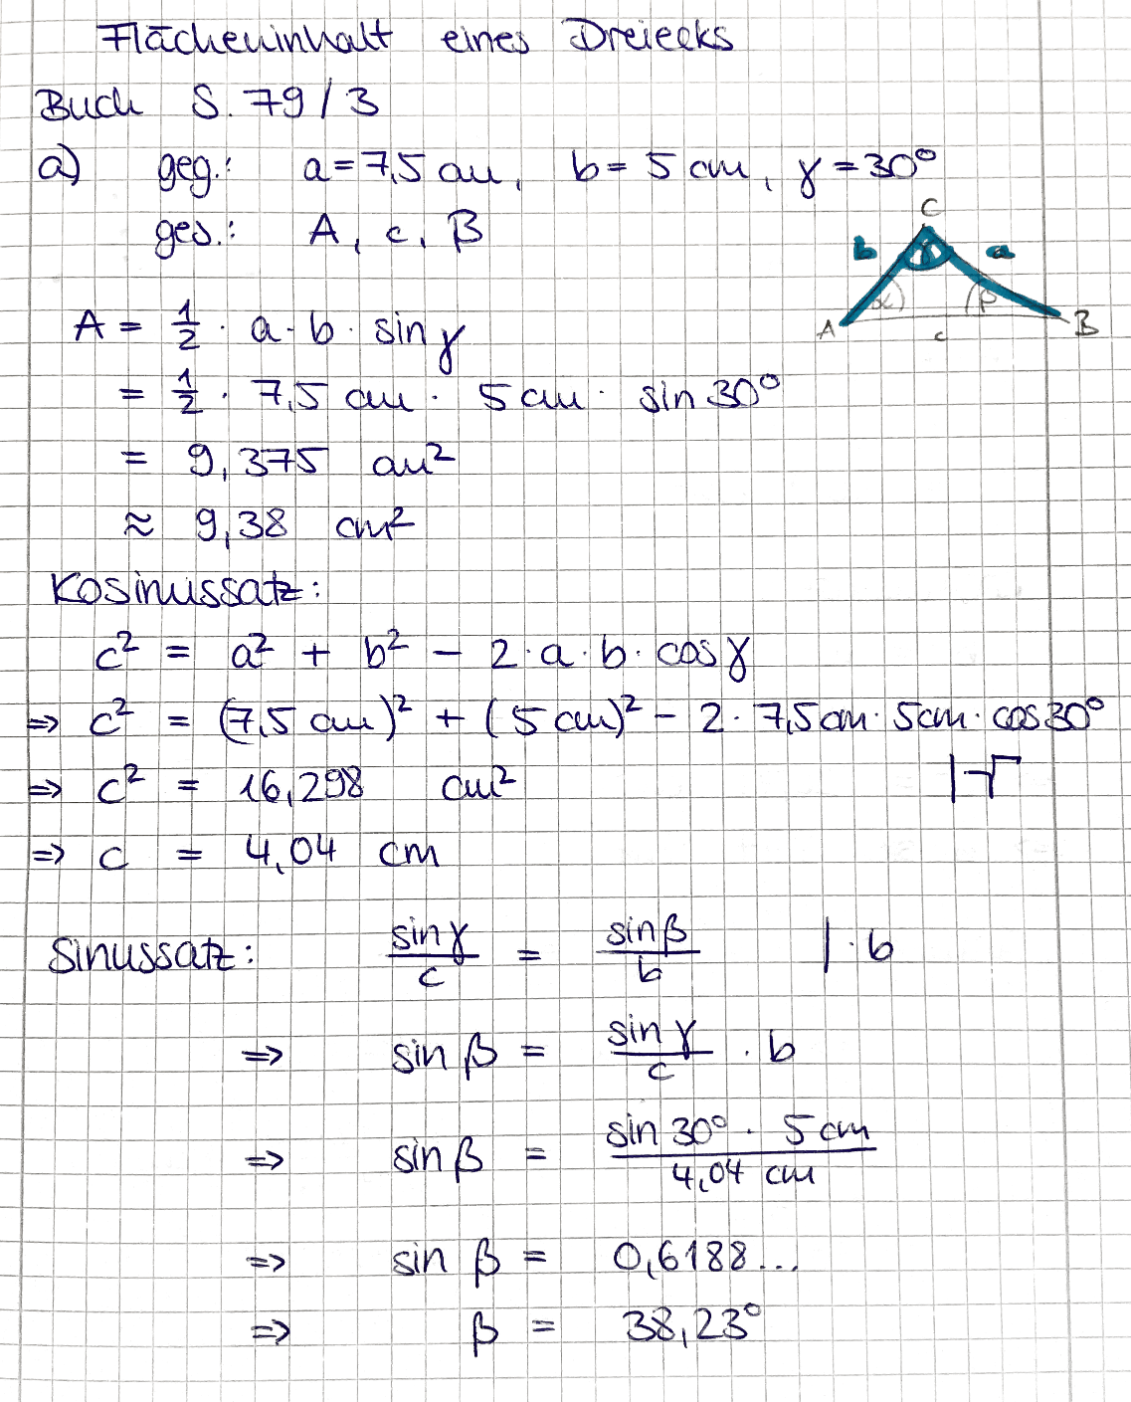 Flächeninhalt eines Dreiecks
Buch S. 79/3
a) geg.: a = 7,5 cm, b = 5 cm, γ = 30°
ges.: A, c, β
C
b γ a
α β
A c B
A = 1/2 · a · b · sin γ
= 1/2 · 7,5 cm · 5 cm · sin 30°
= 9,375 cm²
≈ 9,38 cm²
Kosinussatz:
c² = a² + b² - 2 · a · b · cos γ
⇒ c² = (7,5 cm)² + (5 cm)² - 2 · 7,5 cm · 5 cm · cos 30°
⇒ c² = 16,298 cm² |√
⇒ c = 4,04 cm
Sinussatz: sin γ / c = sin β / b | · b
⇒ sin β = sin γ / c · b
⇒ sin β = sin 30° · 5 cm / 4,04 cm
⇒ sin β = 0,6188...
⇒ β = 38,23°